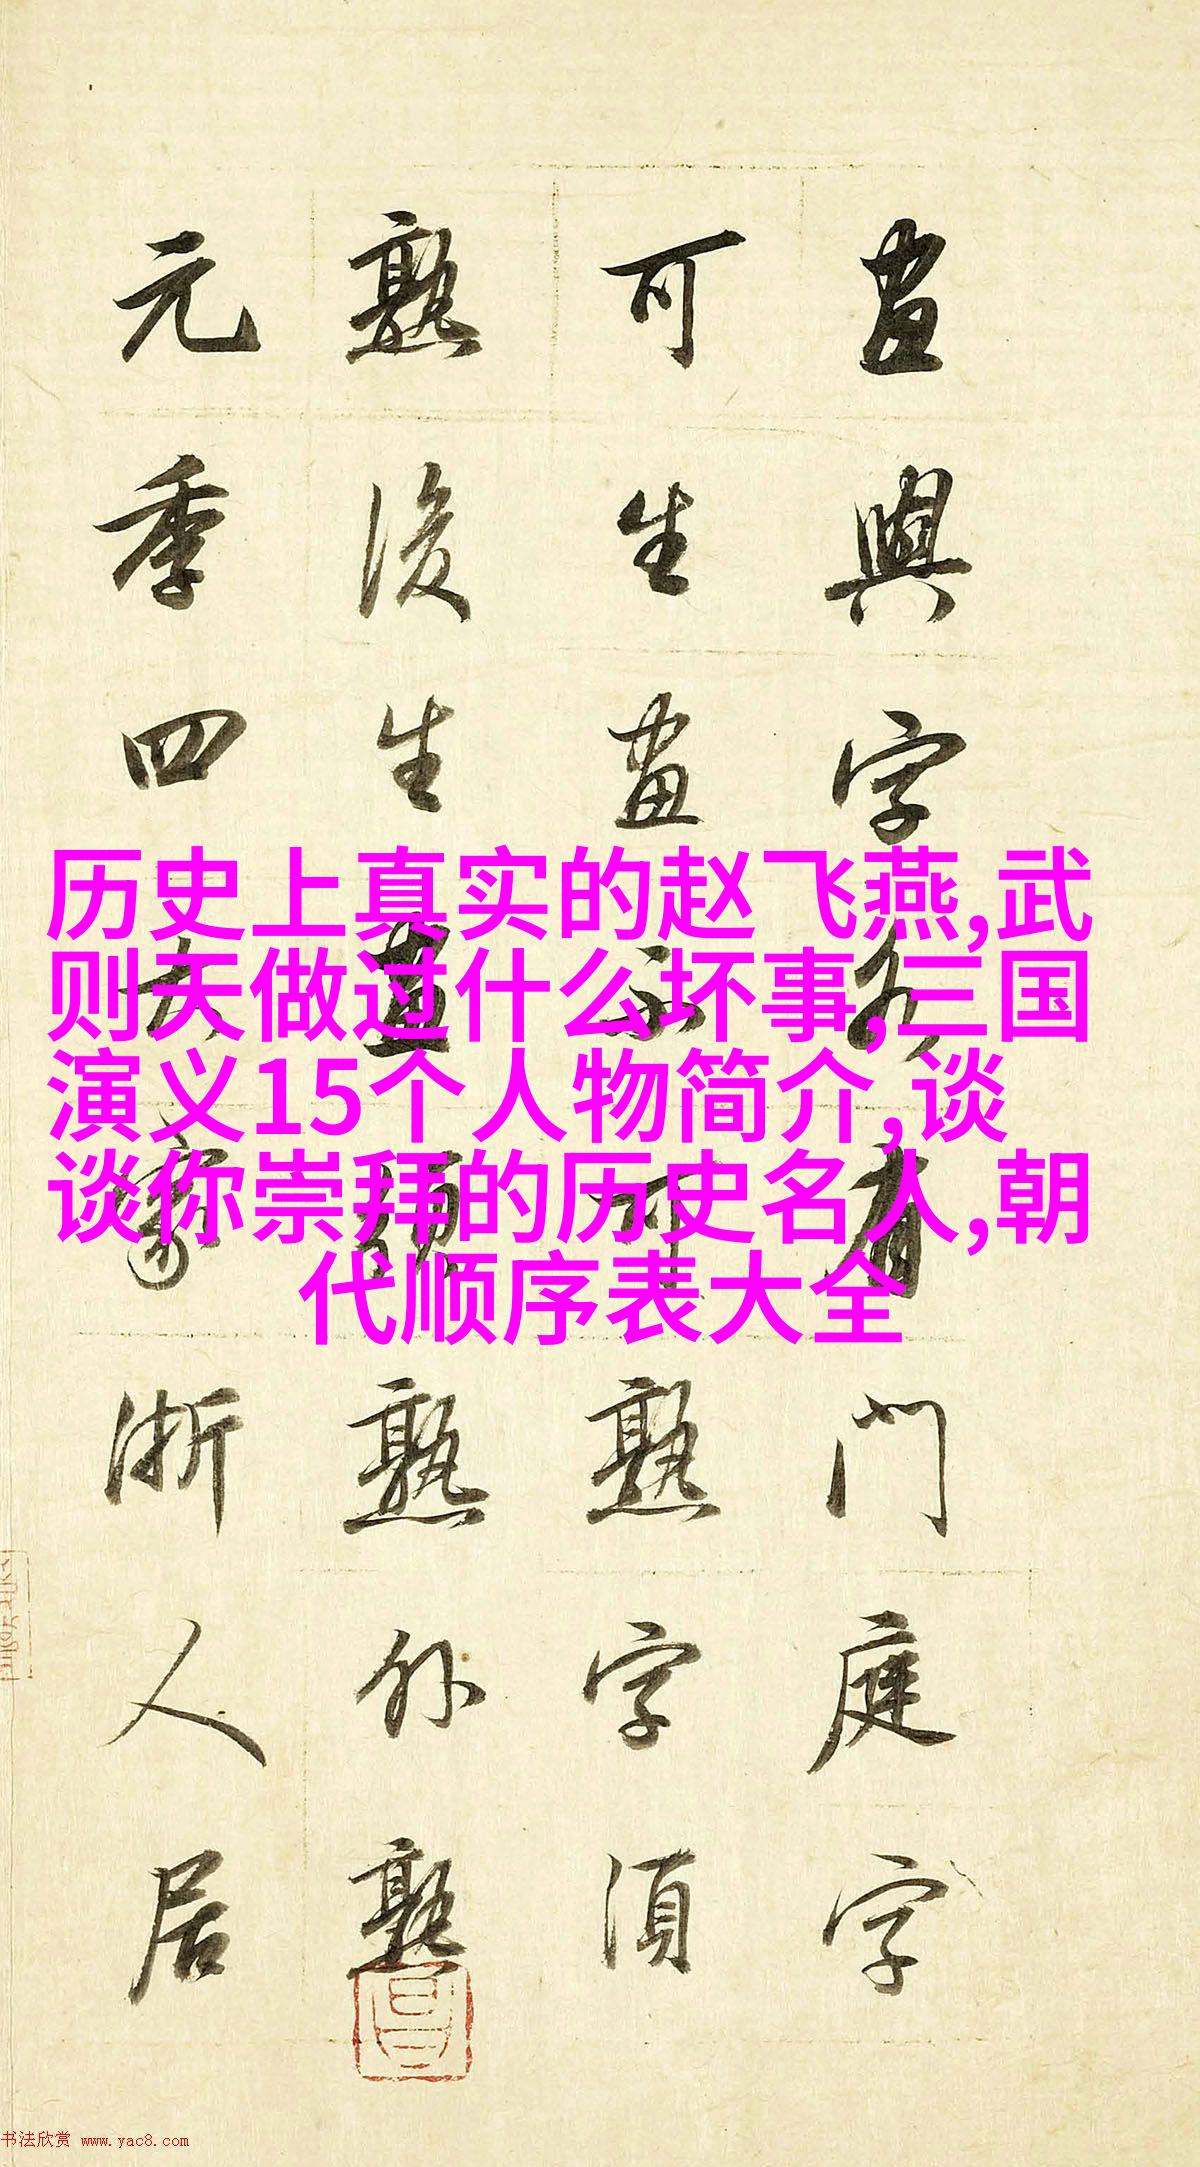 畫與字各有門庭字
可生畫不可熟字須
熟後生畫須熟外熟
元季四大家浙人居
历史上真实的赵飞燕,武
则天做过什么坏事,三国
演义15个人物简介,谈
谈你崇拜的历史名人,朝
代顺序表大全
书法欣赏 www.yac8.com